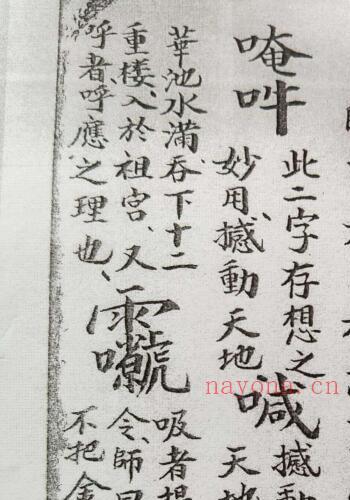 唵吽
此二字存想之
妙用、撼動天地
喊
撼
天地
華池水滿吞下十二
重楼、入於祖宫、又
呼者呼應之理也、
吸者
令、師
不把金
nayona.cn